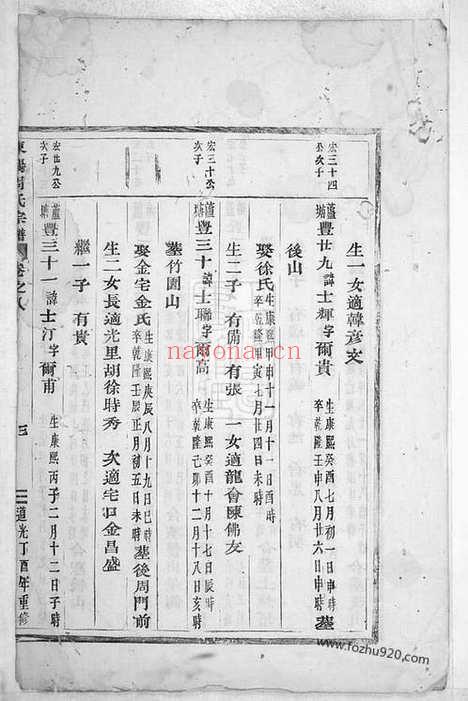 生一女適韓彦文
宏三十四公次子
蘆塘豐廿九諱士輝字爾貴 生康熙癸酉七月初一日申時 卒乾隆壬申八月廿六日申時 墓
後山
娶徐氏 生康熙甲申十一月十一日酉時 卒乾隆甲寅七月廿四日未時
生二子 有備 有張 一女適龍會陳佛友
宏三十公次子
蘆塘豐三十諱士聯字爾高 生康熙癸酉十月十七日辰時 卒乾隆己卯十二月十八日亥時
墓竹園山
娶金宅金氏 生康熙庚辰八月十九日巳時 卒乾隆壬辰正月初五日未時 墓後周門前
生二女長適光里胡徐時秀 次適宅口金昌盛
繼一子 有貴
宏廿九公次子
蘆塘豐三十一諱士汀字爾甫 生康熙丙子二月十二日子時
東陽周氏宗譜 卷之八 三 道光丁酉年重修
nayona.cn
www.fozhu920.com